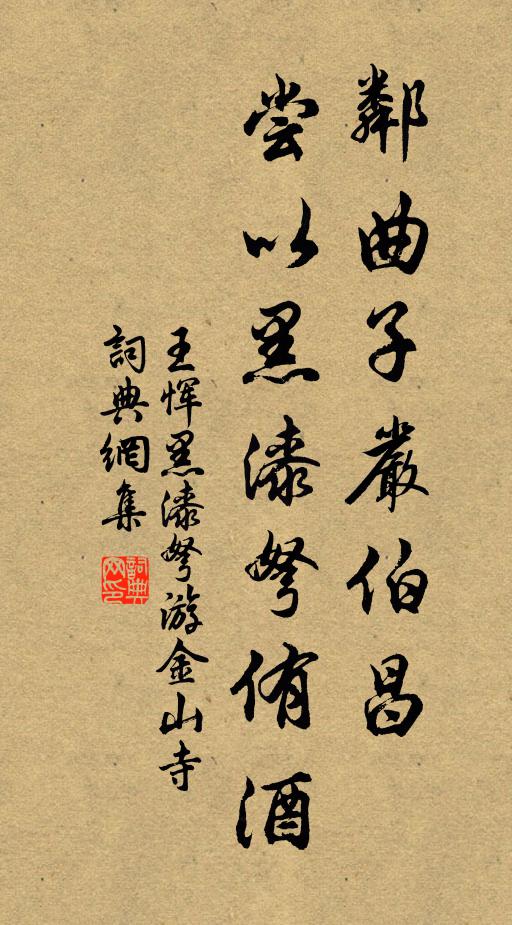 鄰曲子嚴伯昌
嘗以黑漆弩侑酒
王惲黑漆弩游金山寺
詞典網集
詞典
網印